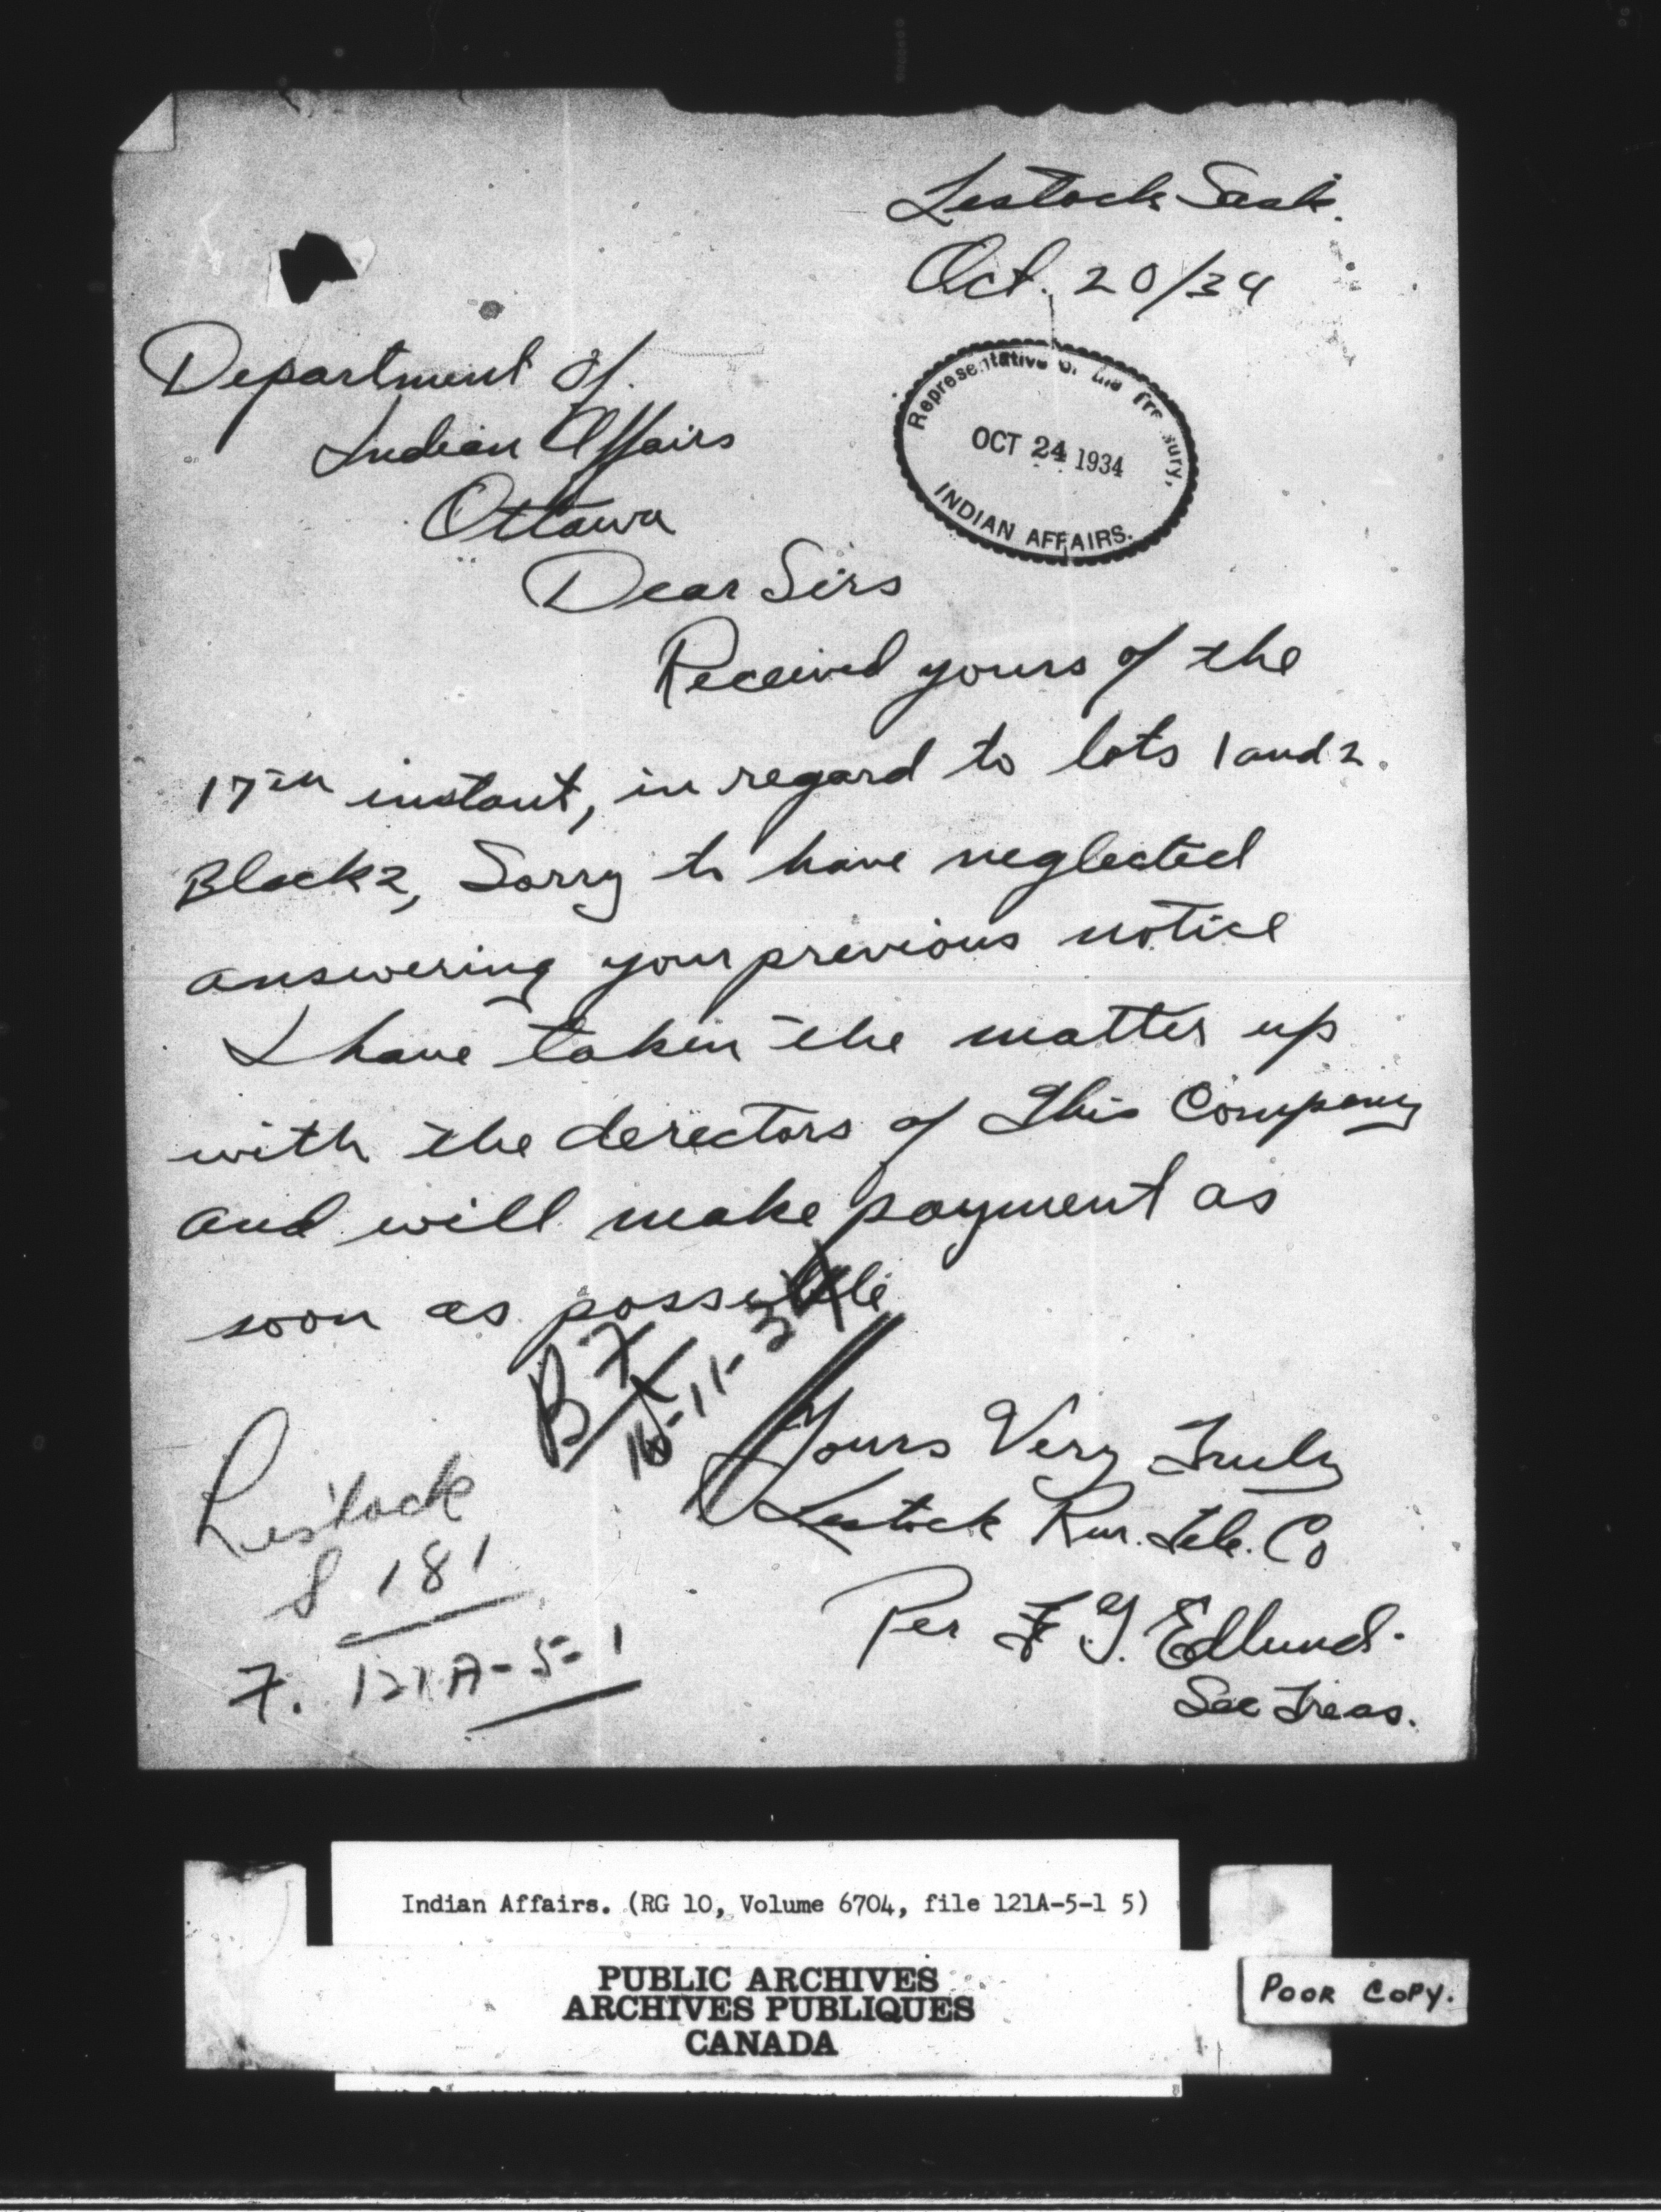 Lestock Sask.
Oct. 20/34
Department of
Indian Affairs
Ottawa
Representative of the Treasury,
OCT 24 1934
INDIAN AFFAIRS.
Dear Sirs
Received yours of the
17th instant, in regard to lots 1 and 2.
Block 2, Sorry to have neglected
answering your previous notice
I have taken the matter up
with the derectors of This Company
and will make payment as
soon as possible
B7
16-11-34
Yours Very Truly
Lestock Rur. Tele. Co
Per F G. Edlund.
Sec Treas.
Lestock
8 181
7. 121A-5-1
Indian Affairs. (RG 10, Volume 6704, file 121A-5-1 5)
PUBLIC ARCHIVES
ARCHIVES PUBLIQUES
CANADA
POOR COPY.